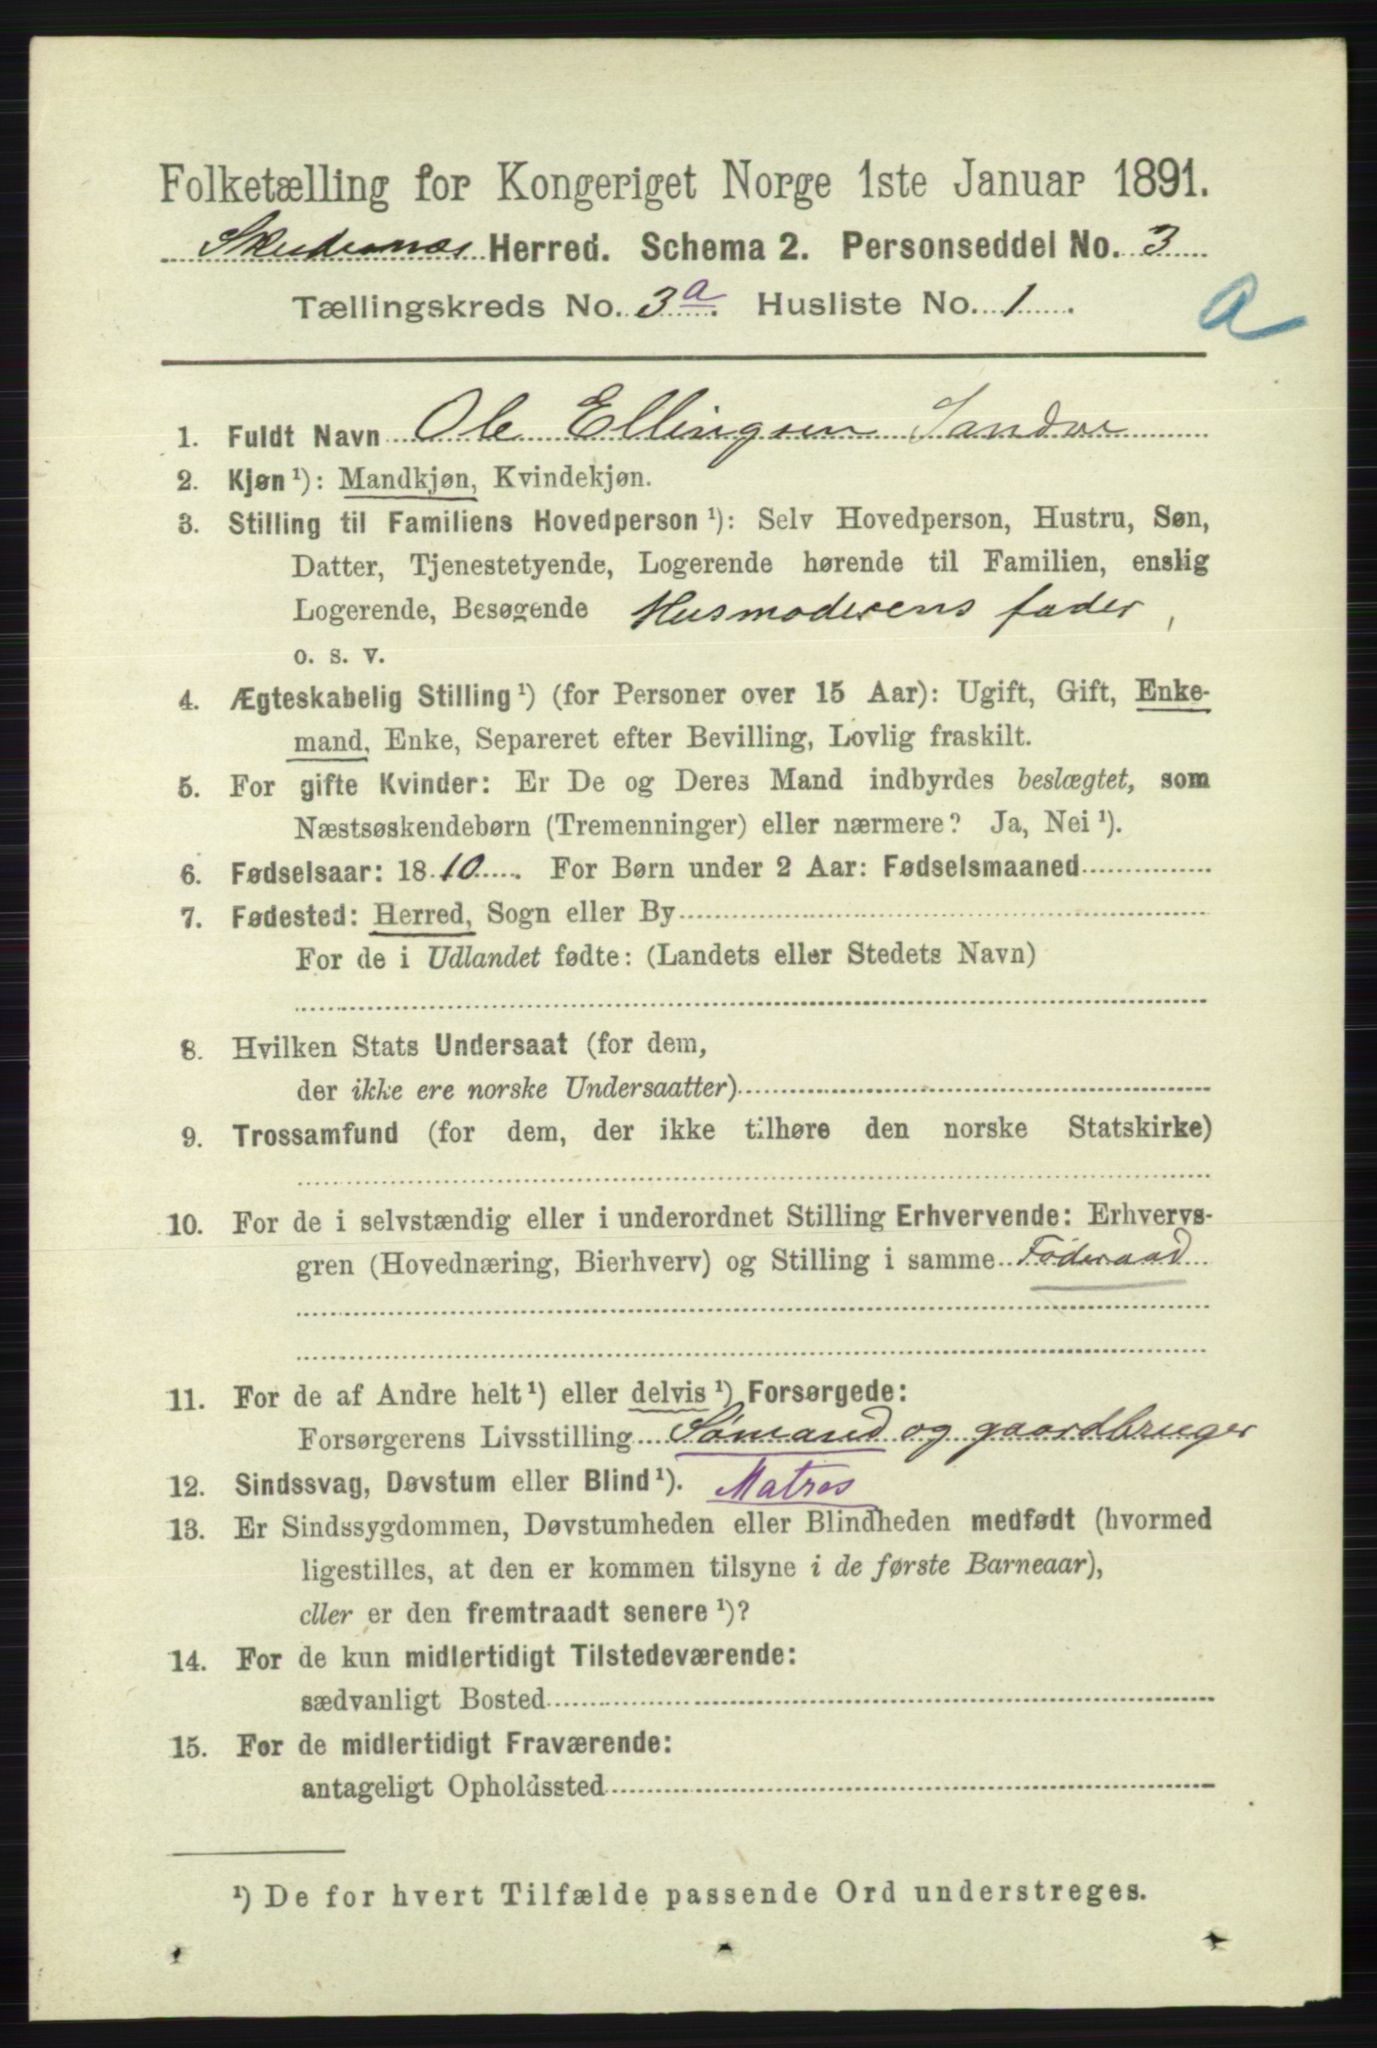 Folketælling for Kongeriget Norge 1ste Januar 1891.
Skudesnæs Herred. Schema 2. Personseddel No. 3
Tællingskreds No. 3 a. Husliste No. 1
a
1. Fuldt Navn Ole Ellingsen Sandve
2. Kjøn ¹): Mandkjøn, Kvindekjøn.
3. Stilling til Familiens Hovedperson ¹): Selv Hovedperson, Hustru, Søn,
Datter, Tjenestetyende, Logerende hørende til Familien, enslig
Logerende, Besøgende Husmoderens fader,
o. s. v.
4. Ægteskabelig Stilling ¹) (for Personer over 15 Aar): Ugift, Gift, Enke-
mand, Enke, Separeret efter Bevilling, Lovlig fraskilt.
5. For gifte Kvinder: Er De og Deres Mand indbyrdes beslægtet, som
Næstsøskendebørn (Tremenninger) eller nærmere? Ja, Nei ¹).
6. Fødselsaar: 1810. For Børn under 2 Aar: Fødselsmaaned
7. Fødested: Herred, Sogn eller By
For de i Udlandet fødte: (Landets eller Stedets Navn)
8. Hvilken Stats Undersaat (for dem,
der ikke ere norske Undersaatter)
9. Trossamfund (for dem, der ikke tilhøre den norske Statskirke)
10. For de i selvstændig eller i underordnet Stilling Erhvervende: Erhvervs-
gren (Hovednæring, Bierhverv) og Stilling i samme Föderaad
11. For de af Andre helt ¹) eller delvis ¹) Forsørgede:
Forsørgerens Livsstilling Sömand og gaardbruger
12. Sindssvag, Døvstum eller Blind ¹). Matros
13. Er Sindssygdommen, Døvstumheden eller Blindheden medfødt (hvormed
ligestilles, at den er kommen tilsyne i de første Barneaar),
eller er den fremtraadt senere ¹)?
14. For de kun midlertidigt Tilstedeværende:
sædvanligt Bosted
15. For de midlertidigt Fraværende:
antageligt Opholdssted
¹) De for hvert Tilfælde passende Ord understreges.